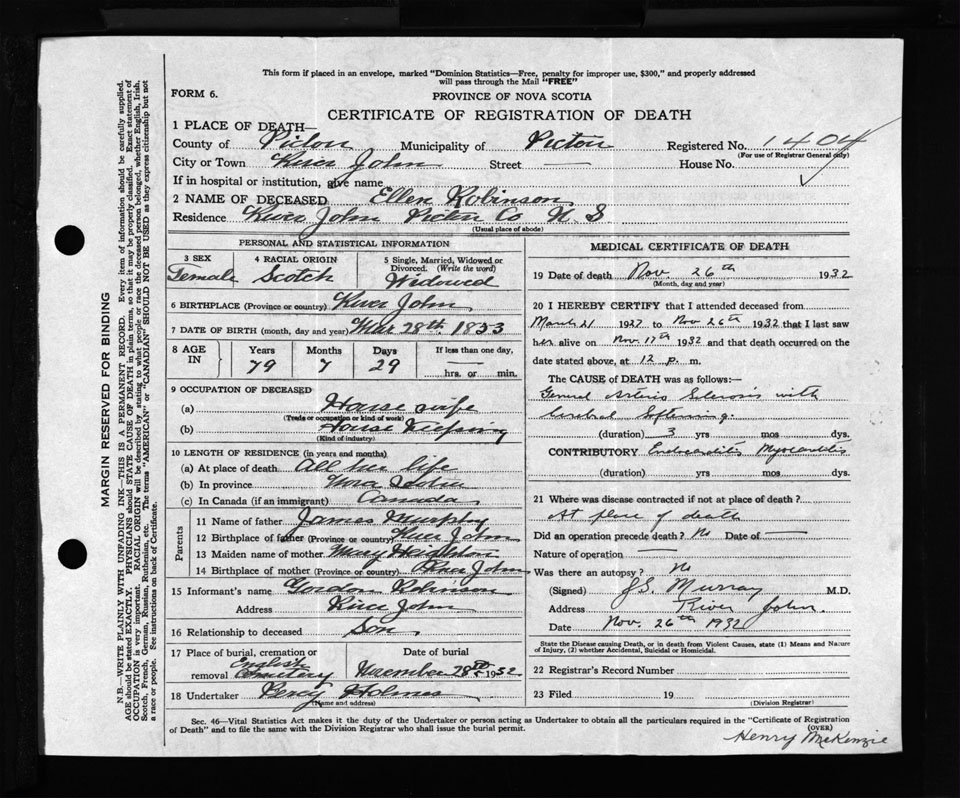 This form if placed in an envelope, marked "Dominion Statistics—Free, penalty for improper use, $300," and properly addressed
will pass through the Mail "FREE"
FORM 6.
PROVINCE OF NOVA SCOTIA
CERTIFICATE OF REGISTRATION OF DEATH
1 PLACE OF DEATH—
County of Pictou Municipality of Pictou Registered No. 1404
(For use of Registrar General only)
City or Town River John Street — House No.
If in hospital or institution, give name
2 NAME OF DECEASED Ellen Robinson
Residence River John Pictou Co N S
(Usual place of abode)
PERSONAL AND STATISTICAL INFORMATION
3 SEX 4 RACIAL ORIGIN 5 Single, Married, Widowed or
Divorced. (Write the word)
Female Scotch Widowed
6 BIRTHPLACE (Province or country) River John
7 DATE OF BIRTH (month, day and year) Mar 28th 1853
8 AGE IN Years Months Days If less than one day,
79 7 29 hrs. or min.
9 OCCUPATION OF DECEASED
(a) House wife
(Trade or occupation or kind of work)
(b) House Keeping
(Kind of industry)
10 LENGTH OF RESIDENCE (in years and months)
(a) At place of death All her life
(b) In province Nova Scotia
(c) In Canada (if an immigrant) Canada
Parents
11 Name of father James Murphy
12 Birthplace of father (Province or country) River John
13 Maiden name of mother Mary Heighton
14 Birthplace of mother (Province or country) River John
15 Informant's name Gordon Robinson
Address River John
16 Relationship to deceased Son
17 Place of burial, cremation or removal Date of burial
English Cemetery November 28th 1932
18 Undertaker Percy Holmes
(Name and address)
MEDICAL CERTIFICATE OF DEATH
19 Date of death Nov. 26th 1932
(Month, day and year)
20 I HEREBY CERTIFY that I attended deceased from
March 21 1927 to Nov 26th 1932 that I last saw
her alive on Nov. 17th 1932 and that death occurred on the
date stated above, at 12 p. m.
The CAUSE of DEATH was as follows:—
General Arterio Sclerosis with
Cerebral Softening.
(duration) 3 yrs mos dys.
CONTRIBUTORY Endocarditis Myocarditis
(duration) yrs. mos. dys.
21 Where was disease contracted if not at place of death?
At place of death
Did an operation precede death? No Date of —
Nature of operation —
Was there an autopsy? No
(Signed) J.S. Murray M.D.
Address River John.
Date Nov. 26th 1932
State the Disease causing Death, or in death from Violent Causes, state (1) Means and Nature
of Injury, (2) whether Accidental, Suicidal or Homicidal.
22 Registrar's Record Number
23 Filed 19
(Division Registrar)
Sec. 46—Vital Statistics Act makes it the duty of the Undertaker or person acting as Undertaker to obtain all the particulars required in the "Certificate of Registration
of Death" and to file the same with the Division Registrar who shall issue the burial permit.
(OVER)
Henry McKenzie
MARGIN RESERVED FOR BINDING
N.B.—WRITE PLAINLY WITH UNFADING INK—THIS IS A PERMANENT RECORD. Every item of information should be carefully supplied.
AGE should be stated EXACTLY. PHYSICIANS should STATE CAUSE OF DEATH in plain terms, so that it may be properly classified. Exact statement of
OCCUPATION is very important. RACIAL ORIGIN will be described by stating to what people or race the deceased person belonged, whether English, Irish,
Scotch, French, German, Russian, Ruthenian, etc. The terms "AMERICAN" or "CANADIAN" SHOULD NOT BE USED as they express citizenship but not
a race or people. See instructions on back of Certificate.